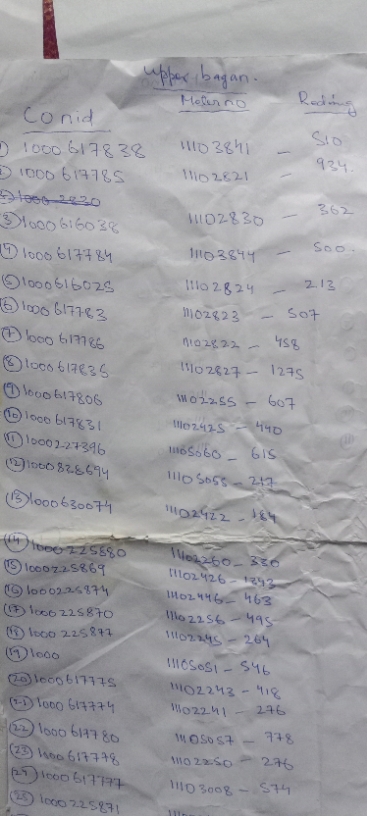 Upper bagan.
Conid Meter no Reding
① 1000617838 11103841 - 510
② 1000617785 11102821 - 934.
③ 1000616038 11102830 - 362
④ 1000617784 11103844 - 500.
⑤ 1000616025 11102824 - 213
⑥ 1000617783 11102823 - 507
⑦ 1000617786 11102822 - 458
⑧ 1000617835 11102827 - 1275
⑨ 1000617806 11102255 - 607
⑩ 1000617831 11102425 - 440
⑪ 1000227396 11105060 - 615
⑫ 1000828694 11105055 - 217
⑬ 1000630074 11102422 - 184
⑭ 1000225880 11102260 - 330
⑮ 1000225869 11102426 - 1343
⑯ 1000225874 11102446 - 463
⑰ 1000225870 11102256 - 495
⑱ 1000225877 11102245 - 264
⑲ 1000 11105051 - 546
⑳ 1000617775 11102243 - 418
㉑ 1000617774 11102241 - 276
㉒ 1000617780 11105057 - 778
㉓ 1000617778 11102250 - 276
㉔ 1000617777 11103008 - 574
㉕ 1000225871